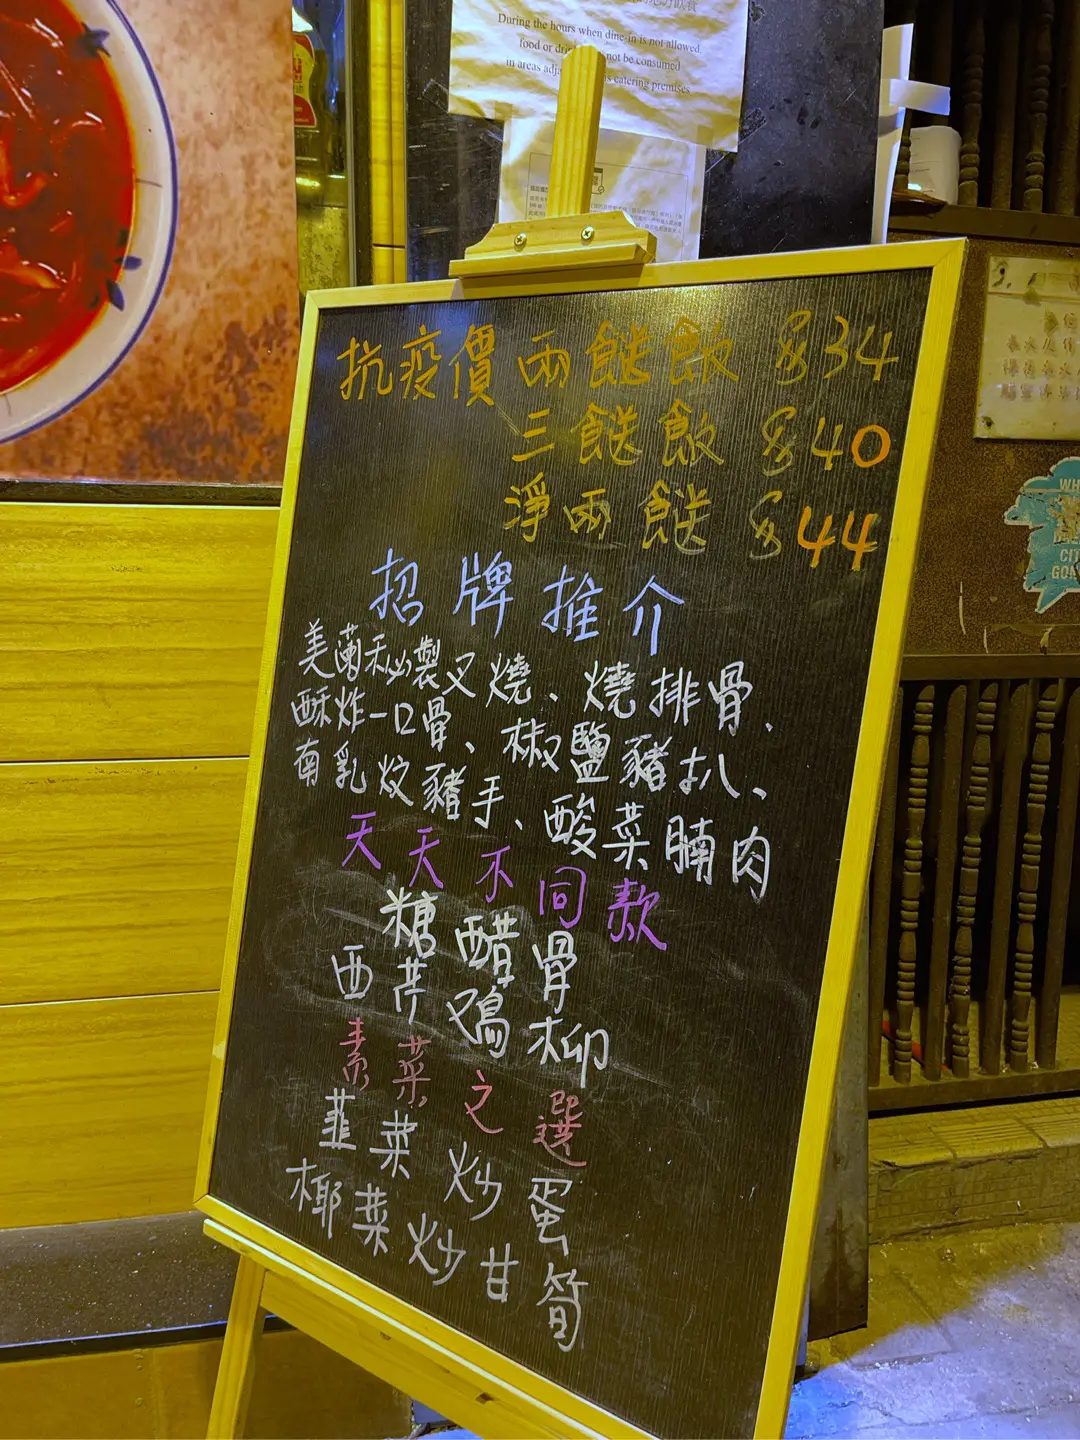 During the hours when dine-in is not allowed
food or
not be consumed
in areas
catering premises
抗疫價 兩餸飯 $34
三餸飯 $40
淨兩餸 $44
招牌推介
美蘭秘製叉燒、燒排骨、
酥炸一口骨、椒鹽豬扒、
南乳炆豬手、酸菜腩肉
天天不同款
糖醋骨
西芹鸡柳
素菜之選
韮菜炒蛋
椰菜炒甘筍
WH
CIT
GO